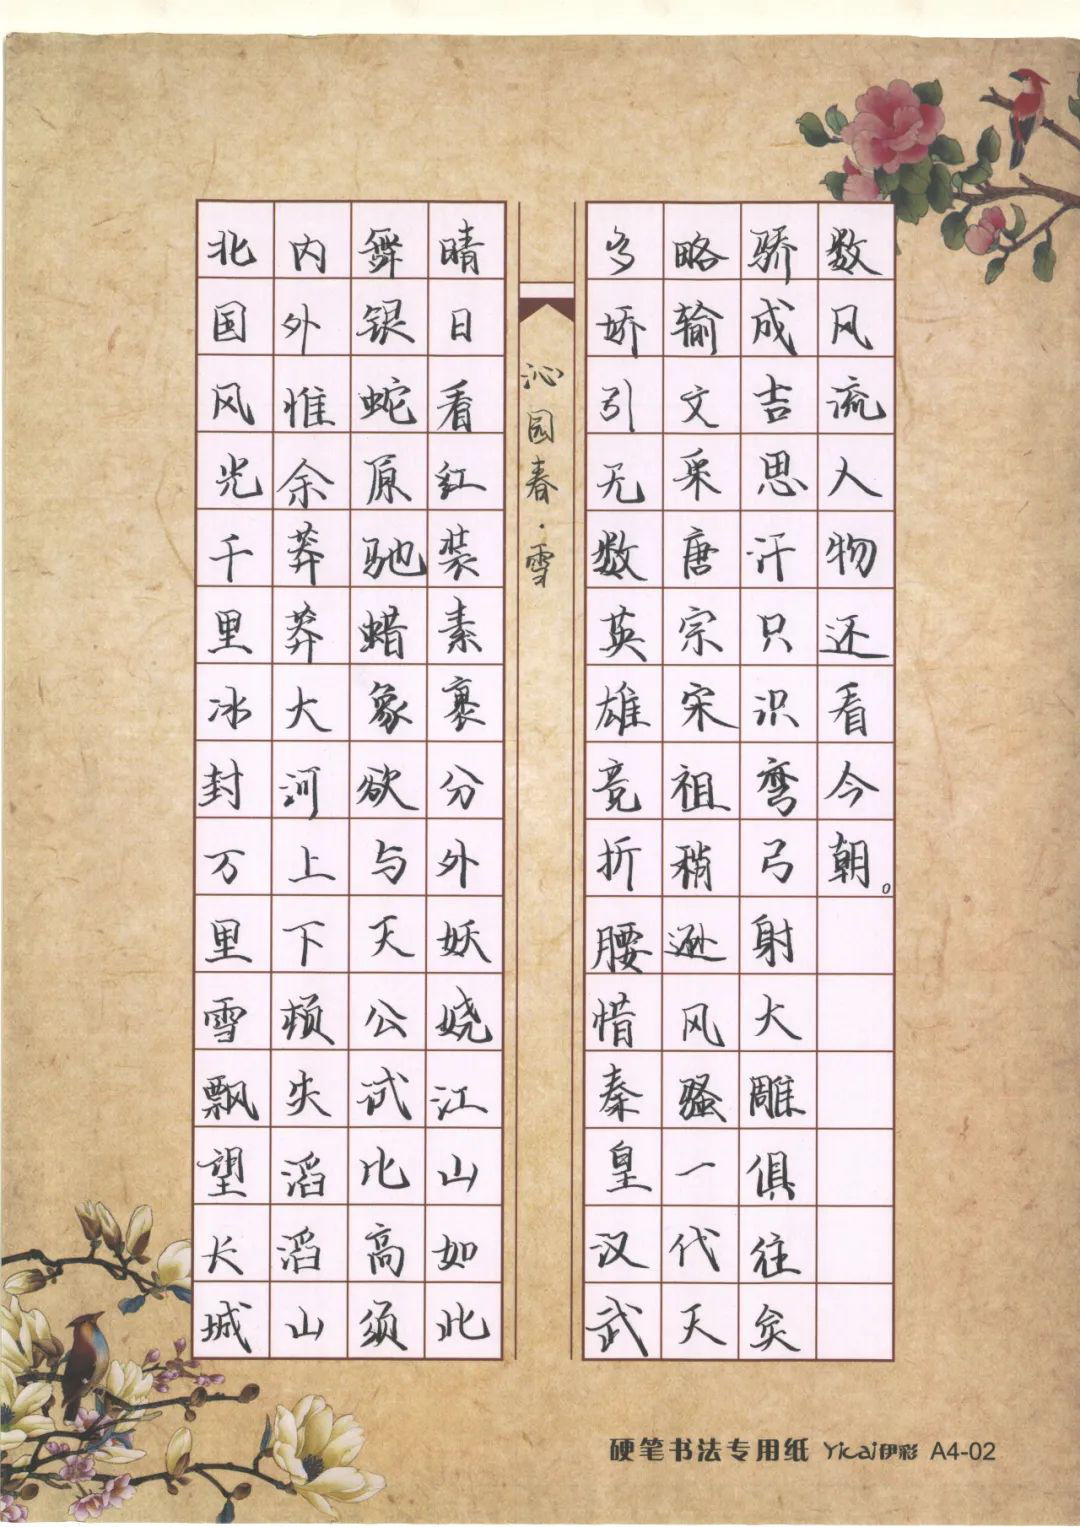 北国风光千里冰封万里雪飘望长城
内外惟余莽莽大河上下顿失滔滔山
舞银蛇原驰蜡象欲与天公试比高须
晴日看红装素裹分外妖娆江山如此
沁园春·雪
多娇引无数英雄竞折腰惜秦皇汉武
略输文采唐宗宋祖稍逊风骚一代天
骄成吉思汗只识弯弓射大雕俱往矣
数风流人物还看今朝。
硬笔书法专用纸 Yicai伊彩 A4-02